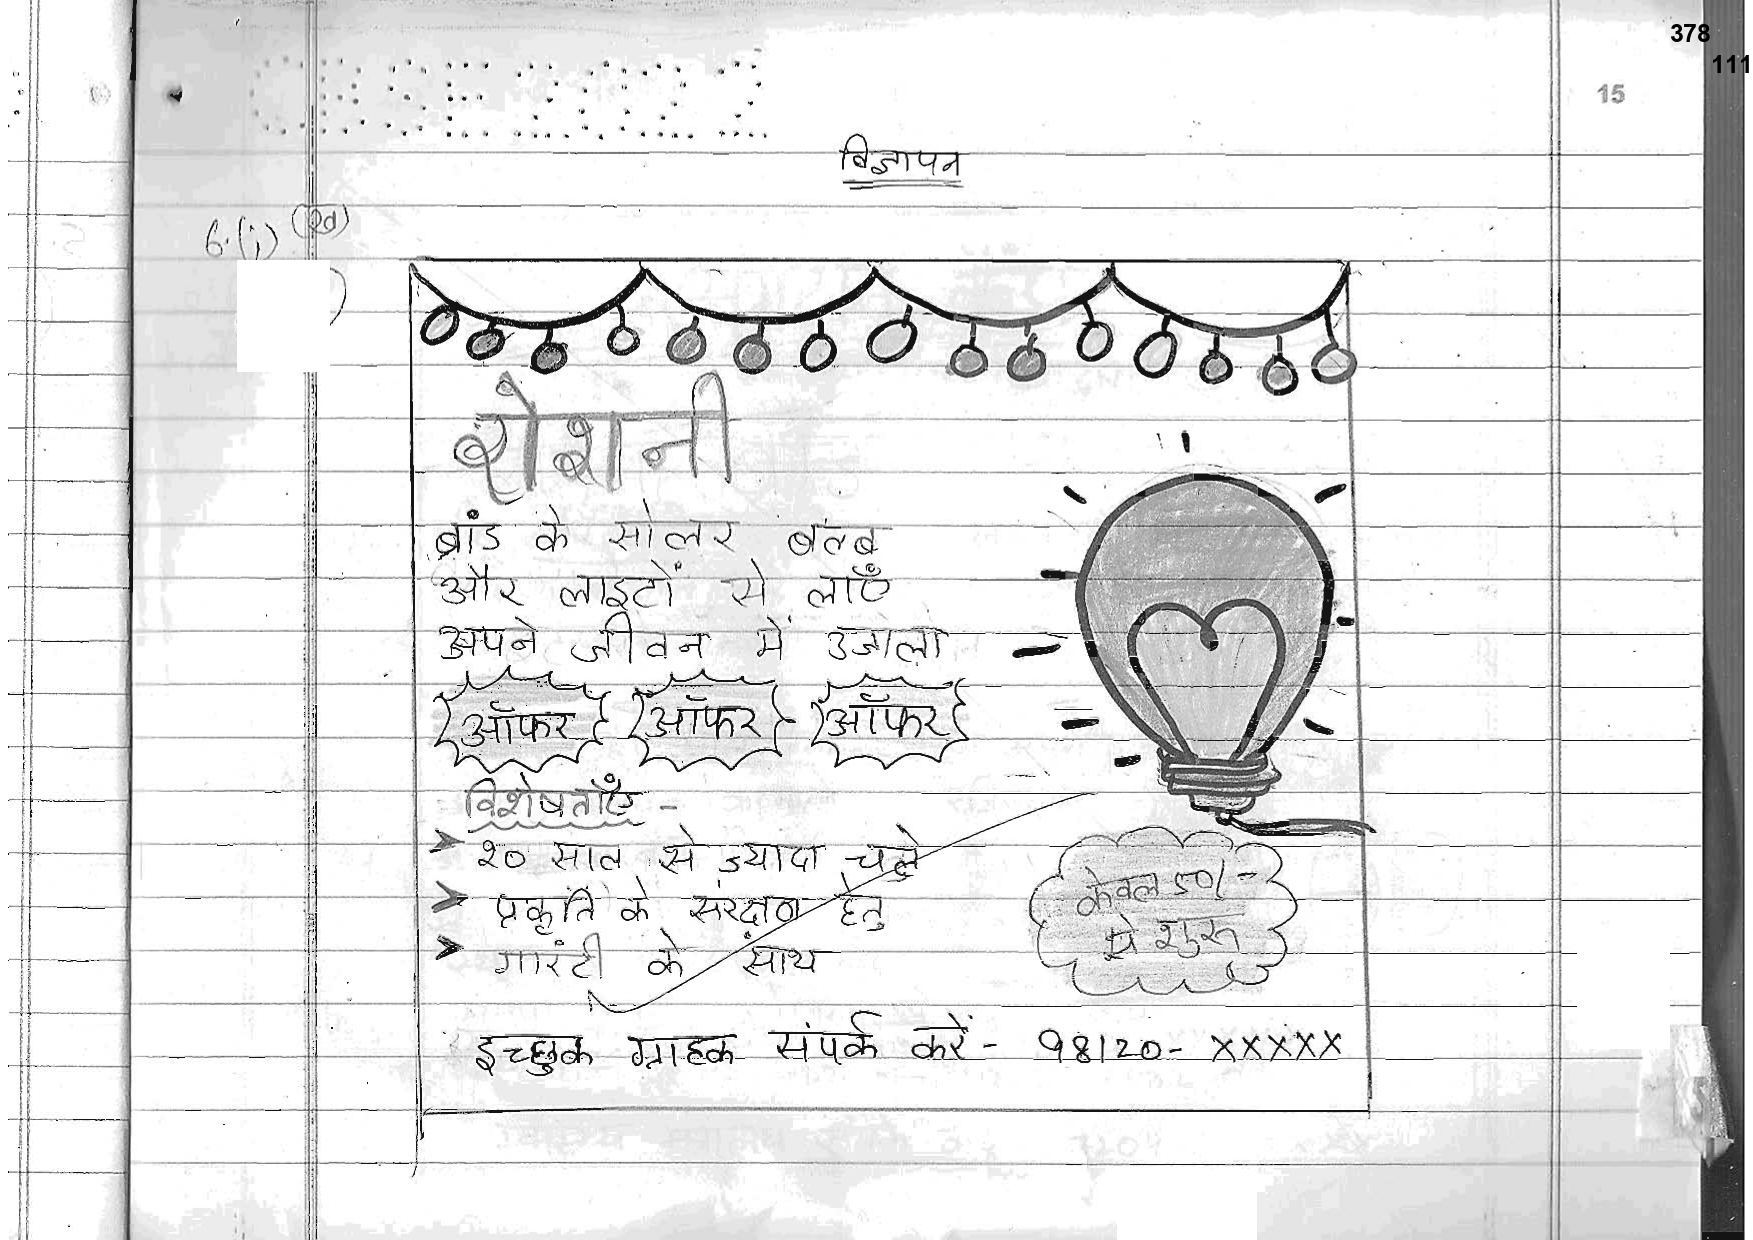 378
111
15
CBSE 2022
विज्ञापन
6.(i) (ख)
रोशनी
ब्रांड के सोलर बल्ब
और लाइटों से लाएँ
अपने जीवन में उजाला
ऑफर ऑफर ऑफर
विशेषताएँ -
२० साल से ज्यादा चले
प्रकृति के संरक्षण हेतु
गारंटी के साथ
केवल 50/-
से शुरू
इच्छुक ग्राहक संपर्क करें - 98120- XXXXX